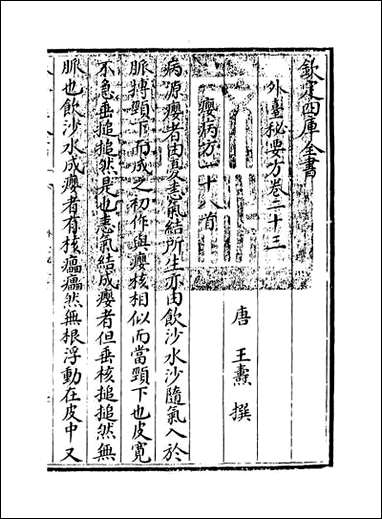 欽定四庫全書
外臺秘要方卷二十三
唐 王燾 撰
癭病方一十八首
病源癭者由憂恚氣結所生亦由飲沙水沙隨氣入於
脈搏頸下而成之初作與癭核相似而當頸下也皮寛
不急垂搥搥然是也恚氣結成癭者但垂核搥搥然無
脈也飲沙水成癭者有核㿔㿔然無根浮動在皮中又